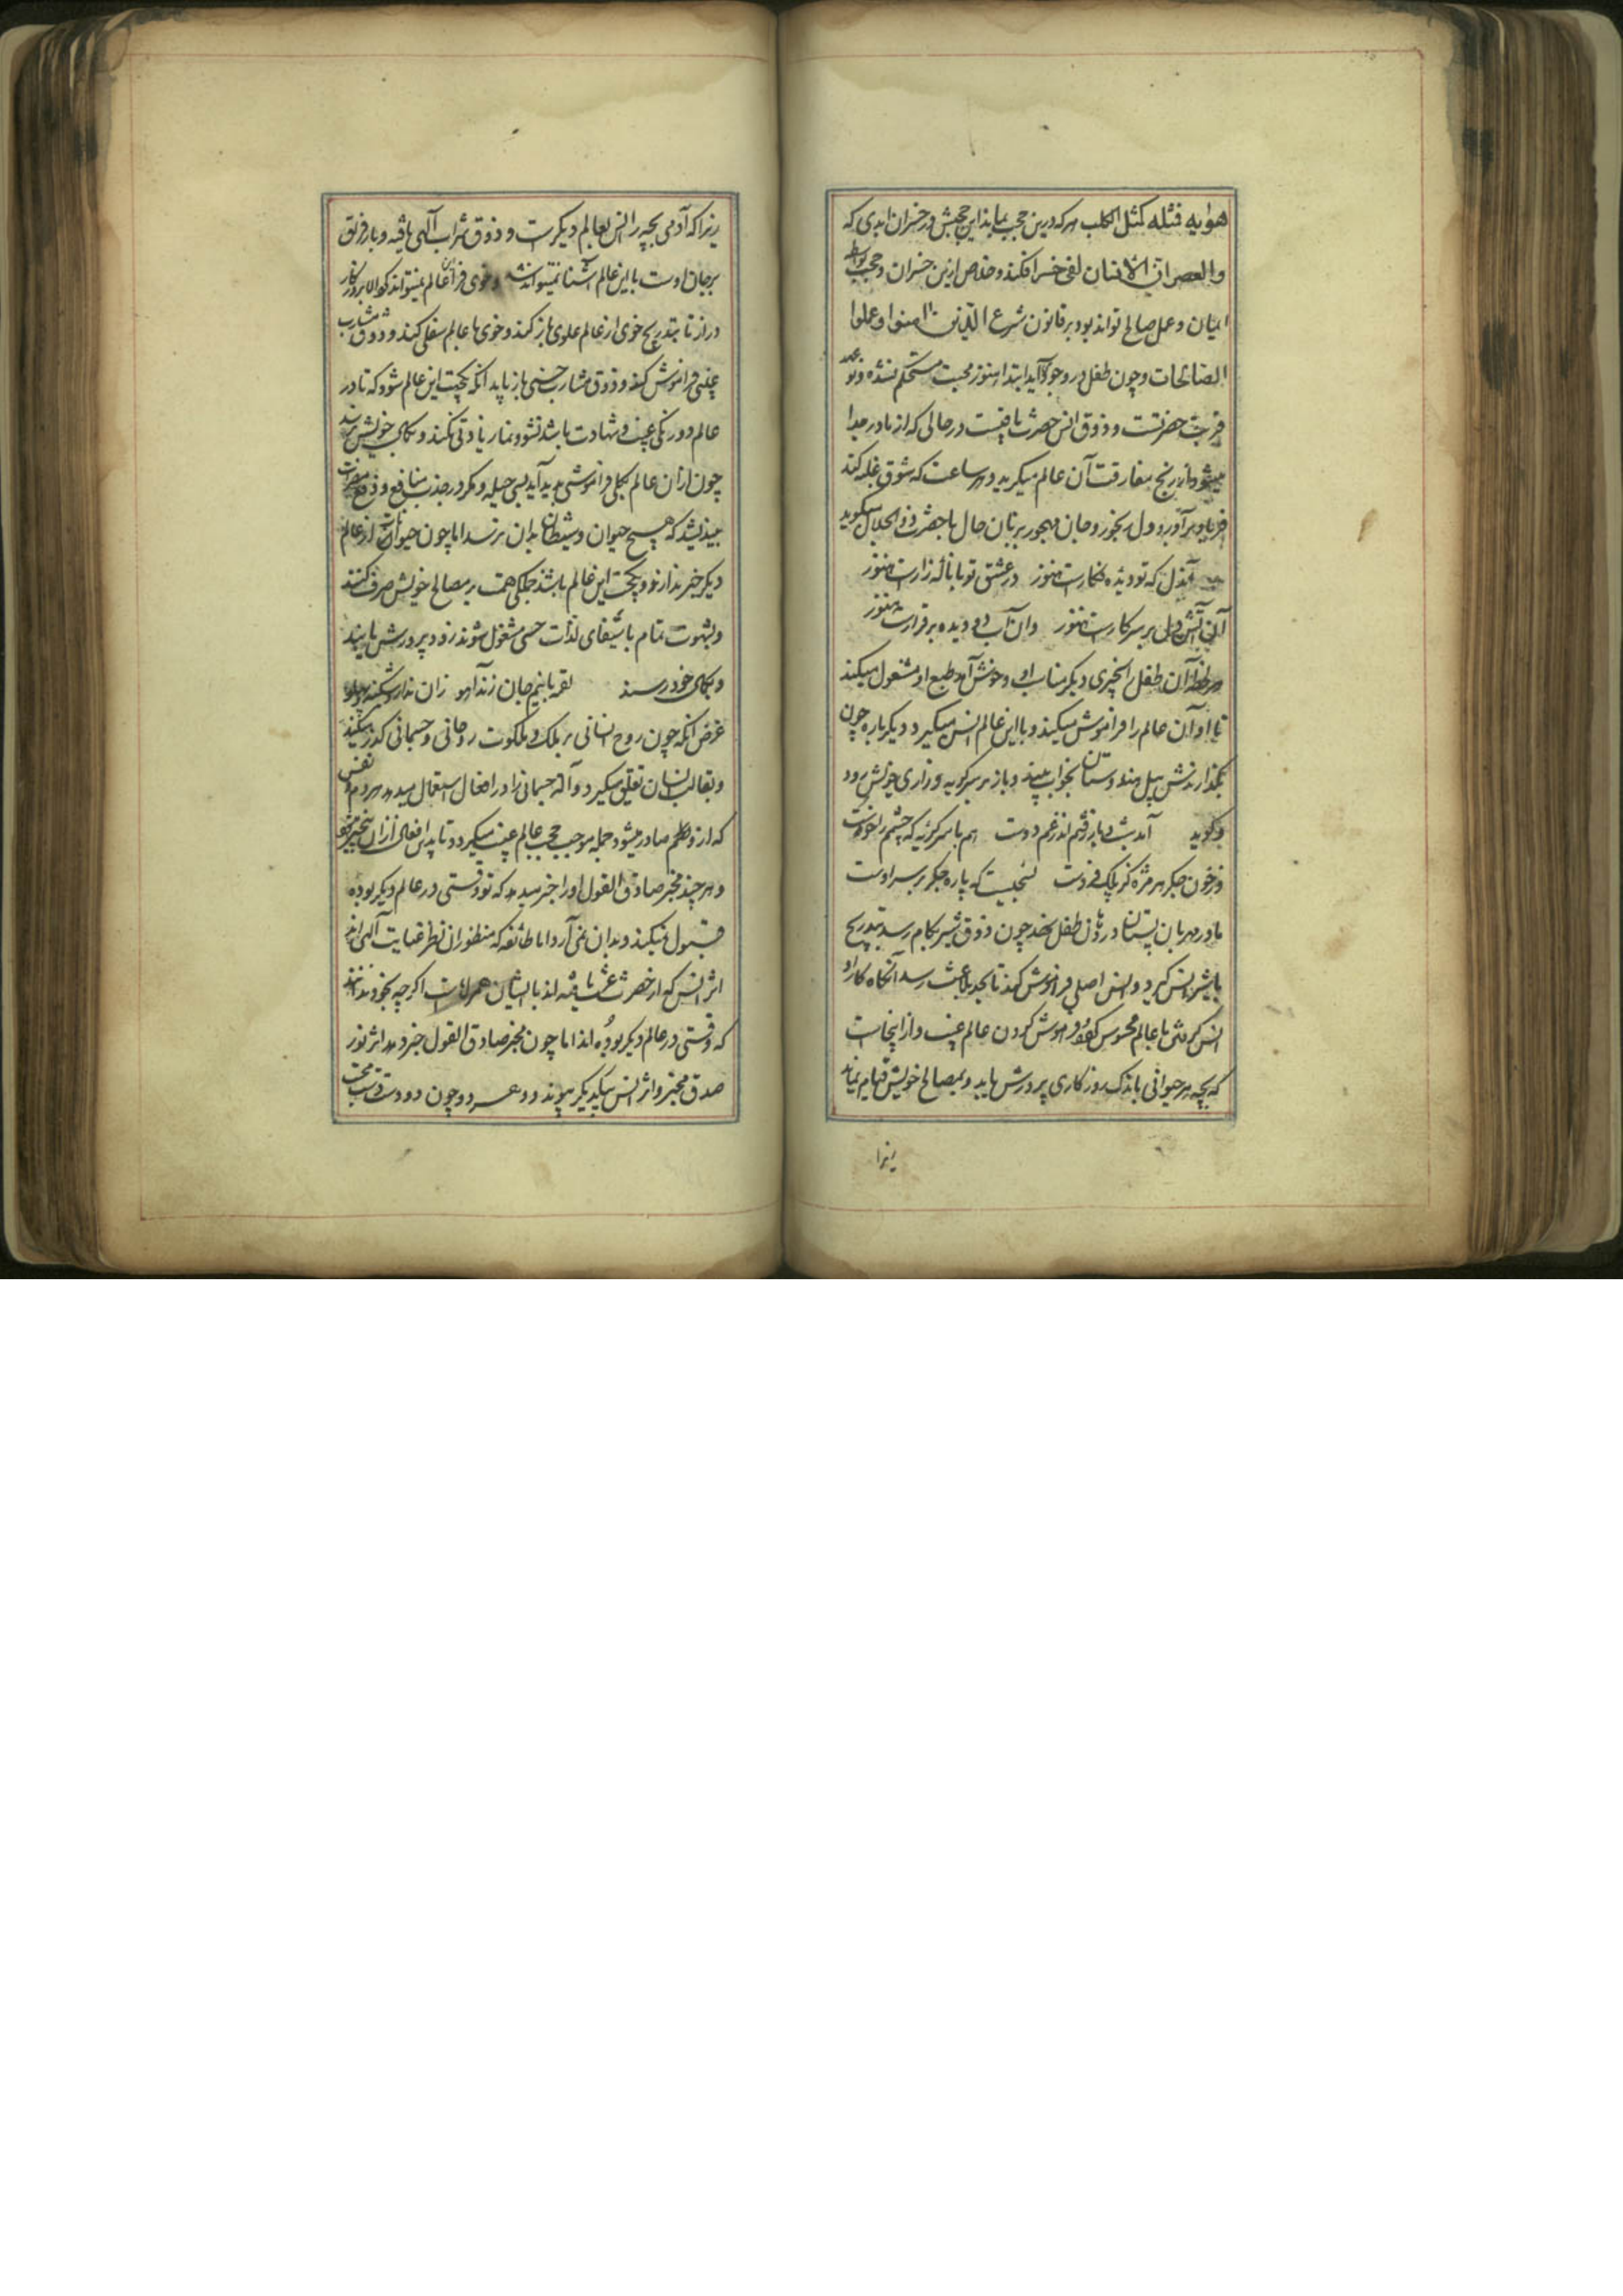 هویه فمثله کمثل الکلب هر که درین حجب بماند این حجبش در خسران ابدی که
والعصر ان الانسان لفی خسر افکند و خلاص ازین خسران و حجب بواسطه
ایمان و عمل صالح تواند بود بر قانون شرع الا الذین امنوا و عملوا
الصالحات و چون طفل در وجود آید ابتدا هنوز محبت مستحکم نشده و نو عهد
قربت حضرتست و ذوق انس حضرت باقیست در حالی که از مادر جدا
میشود از رنج مفارقت آن عالم میگرید و هر ساعت که شوق غلبه کند
فریاد بر آورد و دل رنجور و جان مهجور بزبان حال با حضرت ذو الجلال میگوید
آندل که تو دیدهٔ فکارست هنوز در عشق تو با ناله زارست هنوز
آن آتش دل بر سر کارست هنوز وان آب دو دیده برقرارست هنوز
هر لحظه آن طفل را بچیزی دیگر مناسب او و خوش آمد طبع او مشغول میکنند
تا او آن عالم را فراموش میکند و با این عالم انس میگیرد دیگر باره چون
بگذارندش پیل هندوستان بخواب بیند و باز بر سر گریه و زاری خویش رود
و گوید آمد شب و باز رفتم اندر غم دوست هم با سر گریه که چشم را خوست
از خون جگر هر مژه کز پلک فروست سیخیست که پاره جگر بر سر اوست
مادر مهربان پستان در دهان طفل نهد چون ذوق شیر بکام رسد بتدریج
با شیر انس گیرد و انس اصلی فراموش کند تا بحد بلاغت رسد آنگاه کار او
انس گرفتن با عالم محسوس بود و فراموش کردن عالم غیب و از اینجاست
که بچه هر حیوانی باندک روزگاری پرورش یابد و بمصالح خویش قیام نماید
زیرا
زیرا که آدمی بچه را انس بعالم دیگرست و ذوق شراب الهی یافته و بار فراق
بر جان اوست با این عالم آشنا نمیتواند شد و خوی فرا آن عالم نمیتواند کرد الا بروزگار
دراز تا بتدریج خوی از عالم علوی باز کند و خوی با عالم سفلی کند و ذوق مشارب
غیبی فراموش کند و ذوق مشارب حسی باز یابد آنگه یکجهت این عالم شود که تا در
عالم دو رنگی غیب و شهادت باشد نشو و نما زیادتی نکند و بکمال خویش نرسد
چون ازان عالم بکلی فراموشی پدید آید بسی حیله و مکر در جذب منافع و دفع مضرت
بیندیشد که هیچ حیوان و شیطان بدان نرسد اما چون حیوانات از عالم
دیگر خبر ندارند و یکجهت این عالم باشند جملگی همت بر مصالح خویش صرف کنند
و بشهوت تمام باستیفای لذات حسی مشغول شوند زود پرورش یابند
و بکمال خود رسند لقمه با بیم جان زند آهو زان ندارد شکنبه و پهلو
غرض آنکه چون روح انسانی بر ملک و ملکوت روحانی و جسمانی گذر میکند
و بقالب انسان تعلق میگیرد و آلت جسمانی را در افعال استعمال میدهد هر دم و نفس
که از و صادر میشود جمله موجب حجب عالم غیب میگردد تا بدان افعال از ان بیخبر میشود
و هر چند مخبر صادق القول او را خبر میدهد که تو وقتی در عالم دیگر بوده
قبول نمیکند و بدان نمی آرد اما طائفه که منظوران نظر عنایت الهی اند
اثر انس که از حضرت عزت یافته اند با ایشان همراهست اگر چه بخود ندانند
که وقتی در عالم دیگر بوده اند اما چون مخبر صادق القول خبر دهد اثر نور
صدق مخبر و اثر انس بیکدیگر پیوندد و هر دو چون دو دوست